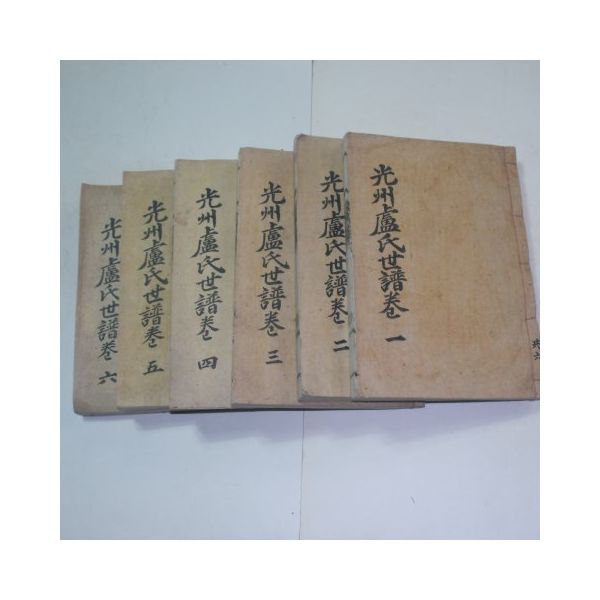 光州盧氏世譜卷一
光州盧氏世譜卷二
光州盧氏世譜卷三
光州盧氏世譜卷四
光州盧氏世譜卷五
光州盧氏世譜卷六
共六